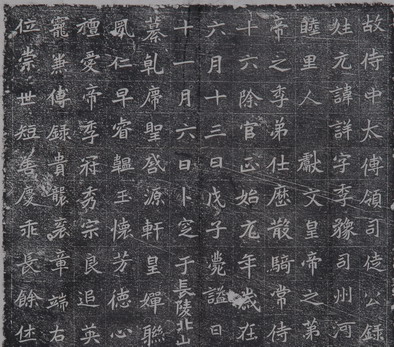 故侍中太傅領司徒公錄
姓元諱詳字季豫司州河
睦里人 獻文皇帝之第
帝之季弟仕歷散騎常侍
十六除官正始元年歲在
六月十三日戊子薨諡曰
十一月六日卜窆于長陵北山
纂乹席聖啓源軒皇嬋聯
風仁早睿韞玉懷芳德心
禋愛帝季冠秀宗良追英
寵兼傅錄貴襲衮章端右
位崇世短善慶乖長餘